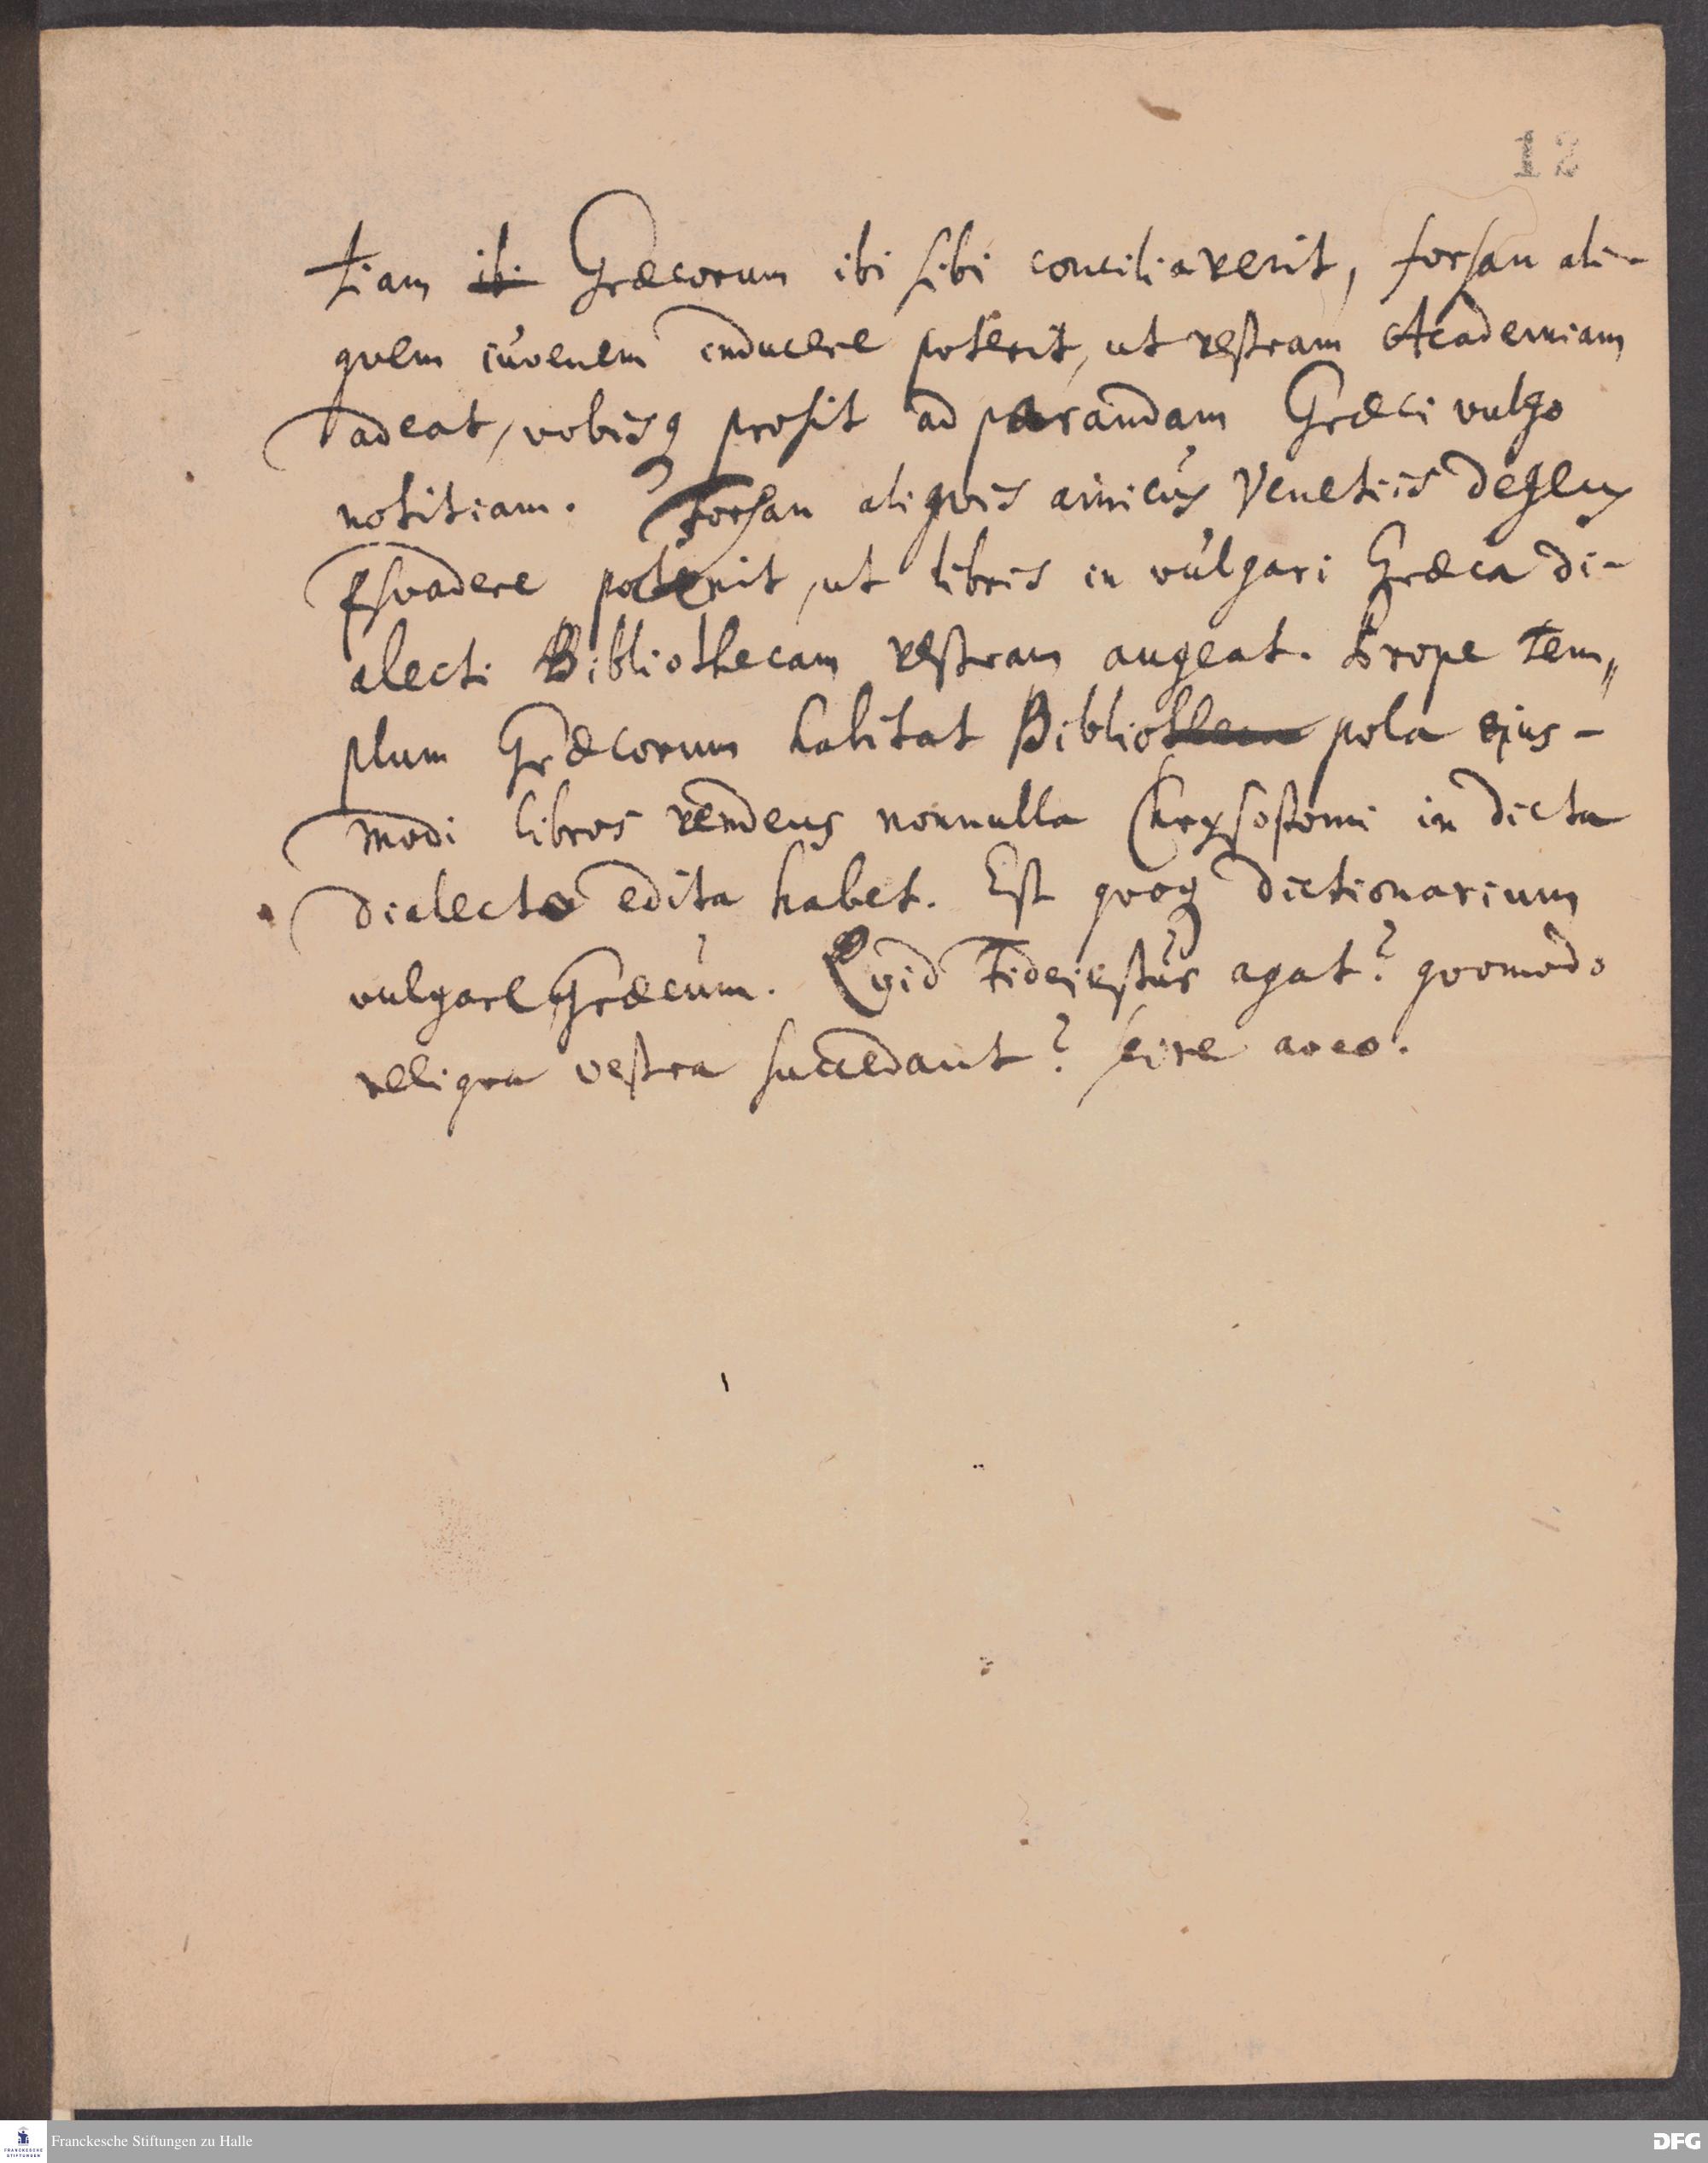 12
tiam ibi Græcorum ibi sibi conciliaverit, forsan ali-
quem iuvenem inducere poterit, ut vestram Academiam
adeat, vobisq prosit ad parandam Græci vulgo
notitiam. Forsan aliquis amicus Venetiis degens
psvadere poterit, ut libris in vulgari Græca di-
alecti Bibliothecam vestram augeat. Prope tem„
plum Græcorum habitat Bibliothecapola ejus-
modi libros vendens nonnulla Chrysostomi in dicta
dialecto edita habet. Est quoq dictionarium
vulgare Græcum. Qvid agat? qvomodo
reliqva vestra succedant? scire aveo.
Franckesche Stiftungen zu Halle
DFG